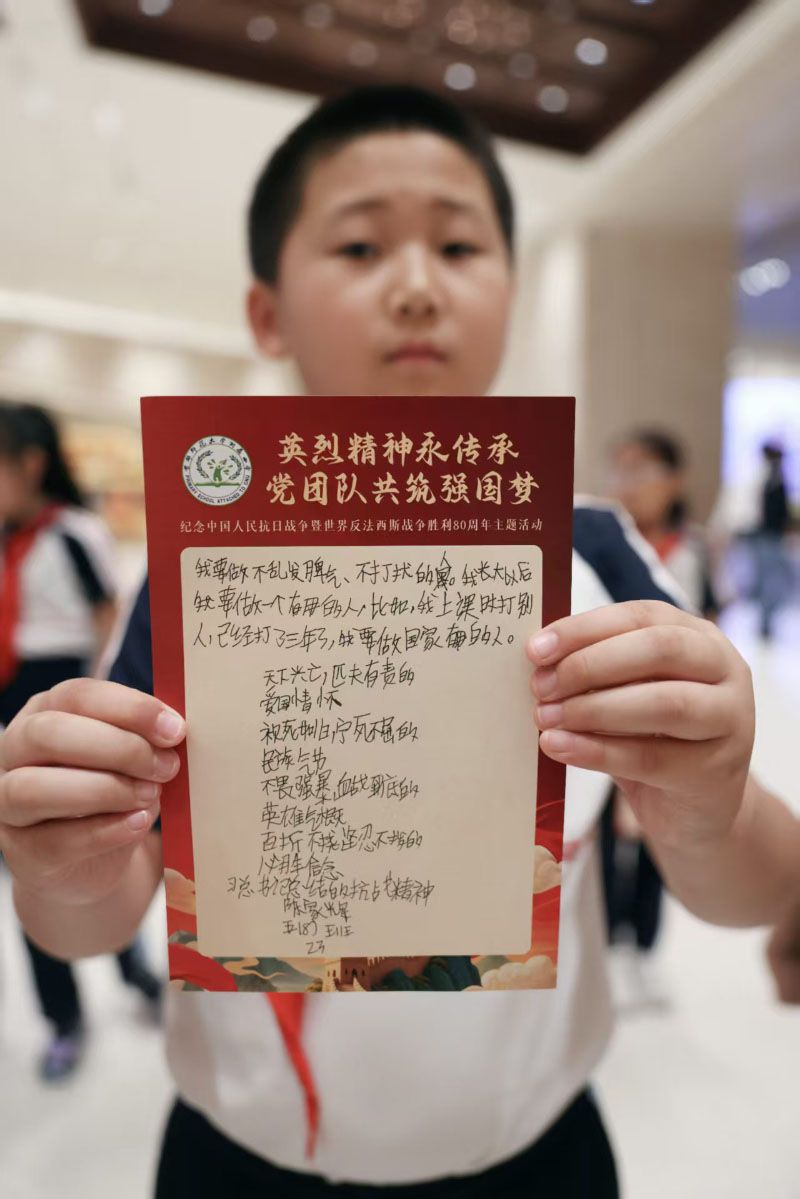 英烈精神永传承
党团队共筑强国梦
纪念中国人民抗日战争暨世界反法西斯战争胜利80周年主题活动
PRIMARY SCHOOL ATTACHED TO
我要做不乱发脾气、不打扰的人。我长大以后
我要做一个有用的人,比如,我上课时打别
人,已经打了三年了,我要做国家有用的人。
天下兴亡,匹夫有责的
爱国情怀
视死如归,宁死不屈的
民族气节
不畏强暴,血战到底的
英雄气概
百折不挠,坚忍不拔的
必胜信念
习总书记总结的抗战精神
陈家
23